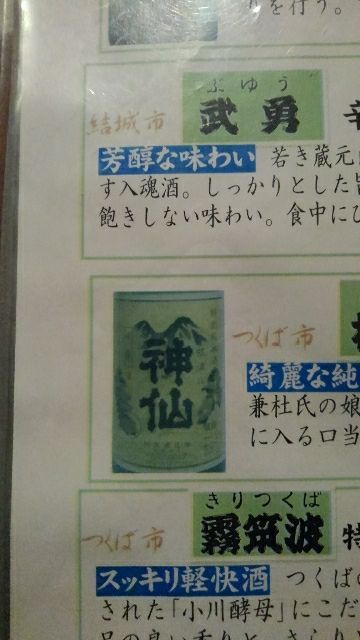 りを行う。
ぶゆう
結城市
武勇
辛
芳醇な味わい 若き蔵元
す入魂酒。しっかりとした
飽きしない味わい。食中にひ
神仙
つくば市
綺麗な純
兼杜氏の娘
に入る口当
きりつくば
つくば市
霧筑波
特
スッキリ軽快酒 つくば
された「小川酵母」にこだ